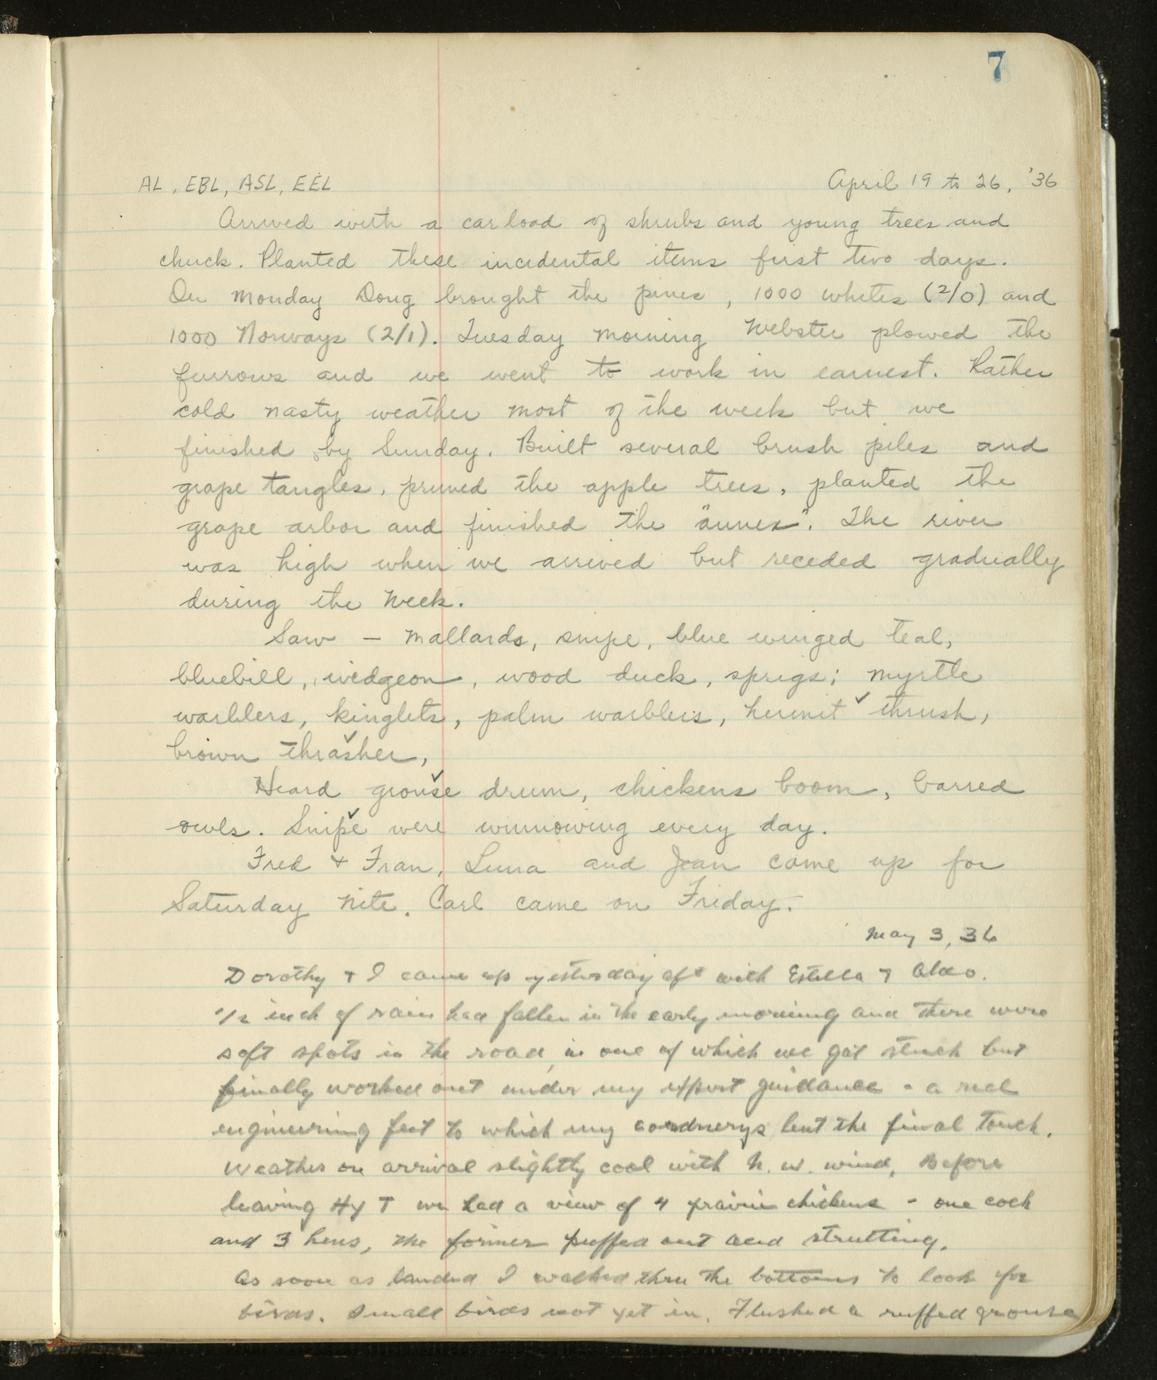 7
AL, EBL, ASL, EEL April 19 to 26, '36
Arrived with a car load of shrubs and young trees and
chuck. Planted these incidental items first two days.
On Monday Doug brought the pines, 1000 whites (2/0) and
1000 Norways (2/1). Tuesday morning Webster plowed the
furrows and we went to work in earnest. Rather
cold nasty weather most of the week but we
finished by Sunday. Built several brush piles and
grape tangles, pruned the apple trees, planted the
grape arbor and finished the "annex". The river
was high when we arrived but receded gradually
during the week.
Saw - mallards, snipe, blue winged teal,
bluebill, widgeon, wood duck, sprigs; myrtle
warblers, kinglets, palm warblers, hermit thrush,
brown thrasher,
Heard grouse drum, chickens boom, barred
owls. Snipe were winnowing every day.
Fred & Fran, Luna and Jean came up for
Saturday nite. Carl came on Friday.
May 3, 36
Dorothy & I came up yesterday aft with Estella & Aldo.
1/2 inch of rain had fallen in the early morning and there were
soft spots in the road, in one of which we got stuck but
finally worked out under my expert guidance - a real
engineering feet to which my lent the final touch.
Weather on arrival slightly cool with N. W. wind. Before
leaving Hy T we had a view of 4 prairie chickens - one cock
and 3 hens, the former puffed out and strutting.
As soon as landed I walked thru the bottoms to look for
birds. Small birds not yet in. Flushed a ruffed grouse